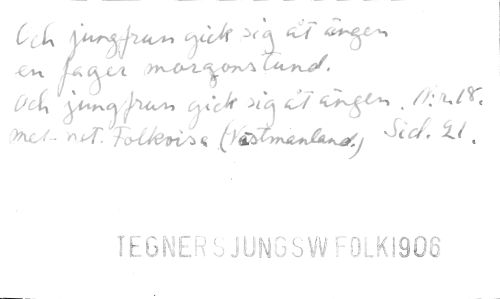 Och jungfrun gick sig åt ängen
en fager morgonstund.
Och jungfrun gick sig åt ängen. N:r 18.
mel. not. Folkvisa (Västmanland.) Sid. 21.
TEGNERSJUNGSWFOLK1906